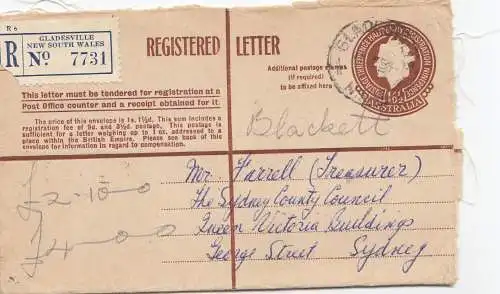 R 6
GLADESVILLE
NEW SOUTH WALES
R No 7731
REGISTERED LETTER
This letter must be tendered for registration at a
Post Office counter and a receipt obtained for it.
The price of this envelope is 1s. 1½d. This sum includes a
registration fee of 9d. and 3½d. postage. This postage is
sufficient for a letter weighing up to 1 oz. addressed to a
place within the British Empire. Please see back of this
envelope for information in regard to compensation.
Additional postage stamps
(if required)
to be affixed here
AUSTRALIA
Blackett
£2-10-0
£4-0-0
Mr. Farrell (Treasurer)
The Sydney County Council
Queen Victoria Buildings
George Street Sydney